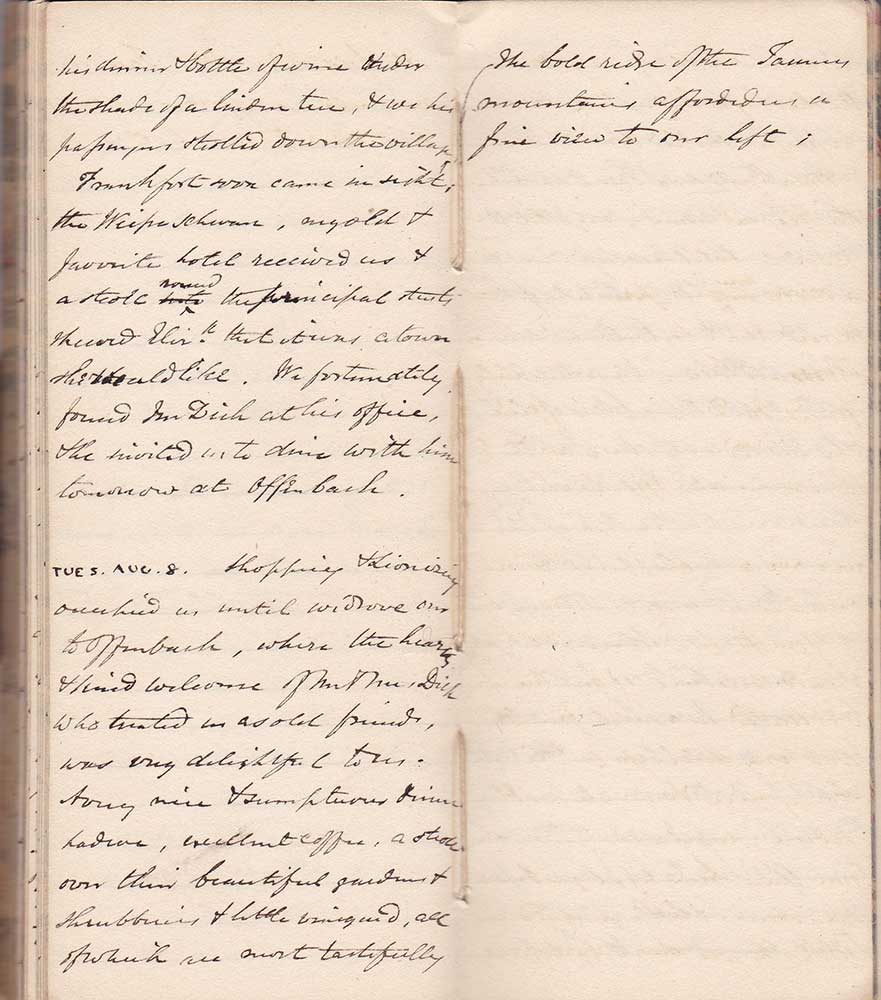 his dinner & bottle of wine under
the shade of a linden tree, & we his
passengers strolled down the village
Frankfort soon came in sight;
the Weisse Schwan, my old &
favorite hotel received us &
a stroll round the principal streets
showed Eliz.th that it was a town
she would like. We fortunately
found Mr Dick at his office,
& he invited us to dine with him
tomorrow at Offenbach.
TUES. AUG. 8. Shopping & Lionizing
occupied us until we drove over
to Offenbach, where the hearty
& kind welcome of Mr & Mrs Dick
who treated us as old friends,
was very delightful to us.
A very nice & sumptuous dinner
had we, excellent coffee, a stroll
over their beautiful gardens &
shrubberies & little vineyard, all
of which are most tastefully
The bold ridge of the Taunus
mountains afforded us a
fine view to our left;